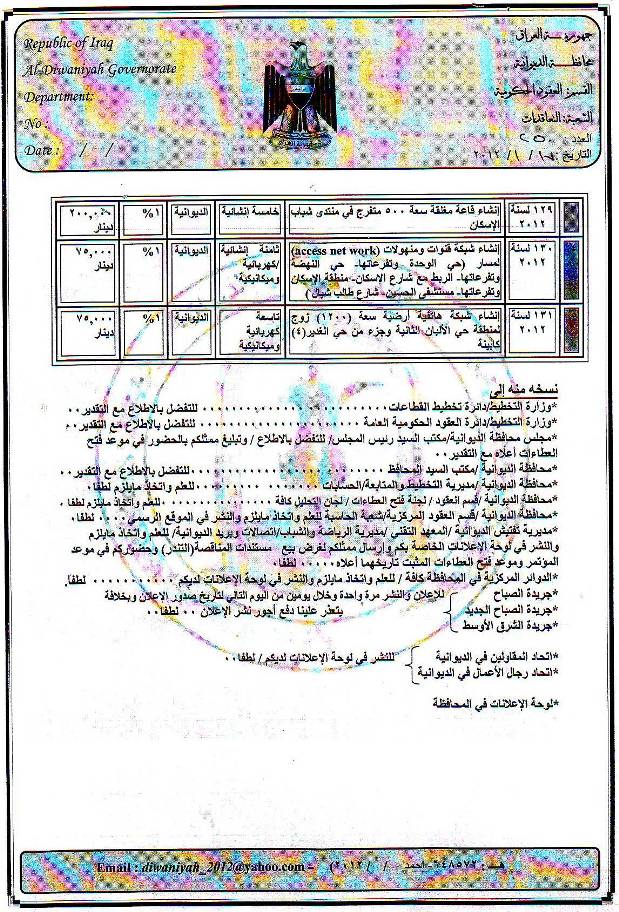 Republic of Iraq
Al-Diwaniyah Governorate
Department:
No :
Date : / /
جمهورية العراق
محافظة الديوانية
القسم: العقود الحكومية
الشعبة: التعاقدات
العدد: ٢٥٠
التاريخ: ١٨/ ١ / ٢٠١٢
١٢٩ لسنة ٢٠١٢ إنشاء قاعة مغلقة سعة ٥٠٠ متفرج في منتدى شباب الإسكان خامسة إنشائية الديوانية ١% ٢٠٠,٠٠٠ دينار
١٣٠ لسنة ٢٠١٢ إنشاء شبكة قنوات ومنهولات (access net work) لمسار (حي الوحدة وتفرعاتها- حي النهضة وتفرعاتها- الربط مع شارع الإسكان- منطقة الإسكان وتفرعاتها- مستشفى الحسين- شارع طالب شيال) ثامنة إنشائية /كهربائية وميكانيكية الديوانية ١% ٧٥,٠٠٠ دينار
١٣١ لسنة ٢٠١٢ إنشاء شبكة هاتفية أرضية سعة (١٢٠٠) زوج لمنطقة حي الألبان الثانية وجزء من حي الغدير(٤) كابينة تاسعة كهربائية وميكانيكية الديوانية ١% ٧٥,٠٠٠ دينار
نسخه منه إلى
*وزارة التخطيط/دائرة تخطيط القطاعات ............ للتفضل بالاطلاع مع التقدير..
*وزارة التخطيط/دائرة العقود الحكومية العامة ............ للتفضل بالاطلاع مع التقدير..
*مجلس محافظة الديوانية/مكتب السيد رئيس المجلس/ للتفضل بالاطلاع / وتبليغ ممثلكم بالحضور في موعد فتح
العطاءات أعلاه مع التقدير..
*محافظة الديوانية /مكتب السيد المحافظ ............ للتفضل بالاطلاع مع التقدير..
*محافظة الديوانية /مديرية التخطيط والمتابعة/الحسابات ............ للعلم واتخاذ مايلزم لطفا.
*محافظة الديوانية /قسم العقود / لجنة فتح العطاءات / لجان التحليل كافة ........ للعلم واتخاذ مايلزم لطفا .
*محافظة الديوانية /قسم العقود المركزية/شعبة الحاسبة للعلم واتخاذ مايلزم والنشر في الموقع الرسمي .... لطفا.
*مديرية تفتيش الديوانية /المعهد التقني /مديرية الرياضة والشباب/اتصالات وبريد الديوانية/ للعلم واتخاذ مايلزم
والنشر في لوحة الإعلانات الخاصة بكم وإرسال ممثلكم لغرض بيع مستندات المناقصة(التندر) وحضوركم في موعد
المؤتمر وموعد فتح العطاءات المثبت تاريخهما أعلاه..... لطفا.
*الدوائر المركزية في المحافظة كافة / للعلم واتخاذ مايلزم والنشر في لوحة الإعلانات لديكم .......... لطفا.
*جريدة الصباح للإعلان والنشر مرة واحدة وخلال يومين من اليوم التالي لتاريخ صدور الإعلان وبخلافة
*جريدة الصباح الجديد يتعذر علينا دفع أجور نشر الإعلان .. لطفا..
*جريدة الشرق الأوسط
*اتحاد المقاولين في الديوانية للنشر في لوحة الإعلانات لديكم / لطفا..
*اتحاد رجال الأعمال في الديوانية
*لوحة الإعلانات في المحافظة
Email : diwaniyah_2012@yahoo.com – ( / / ٢٠١٢)